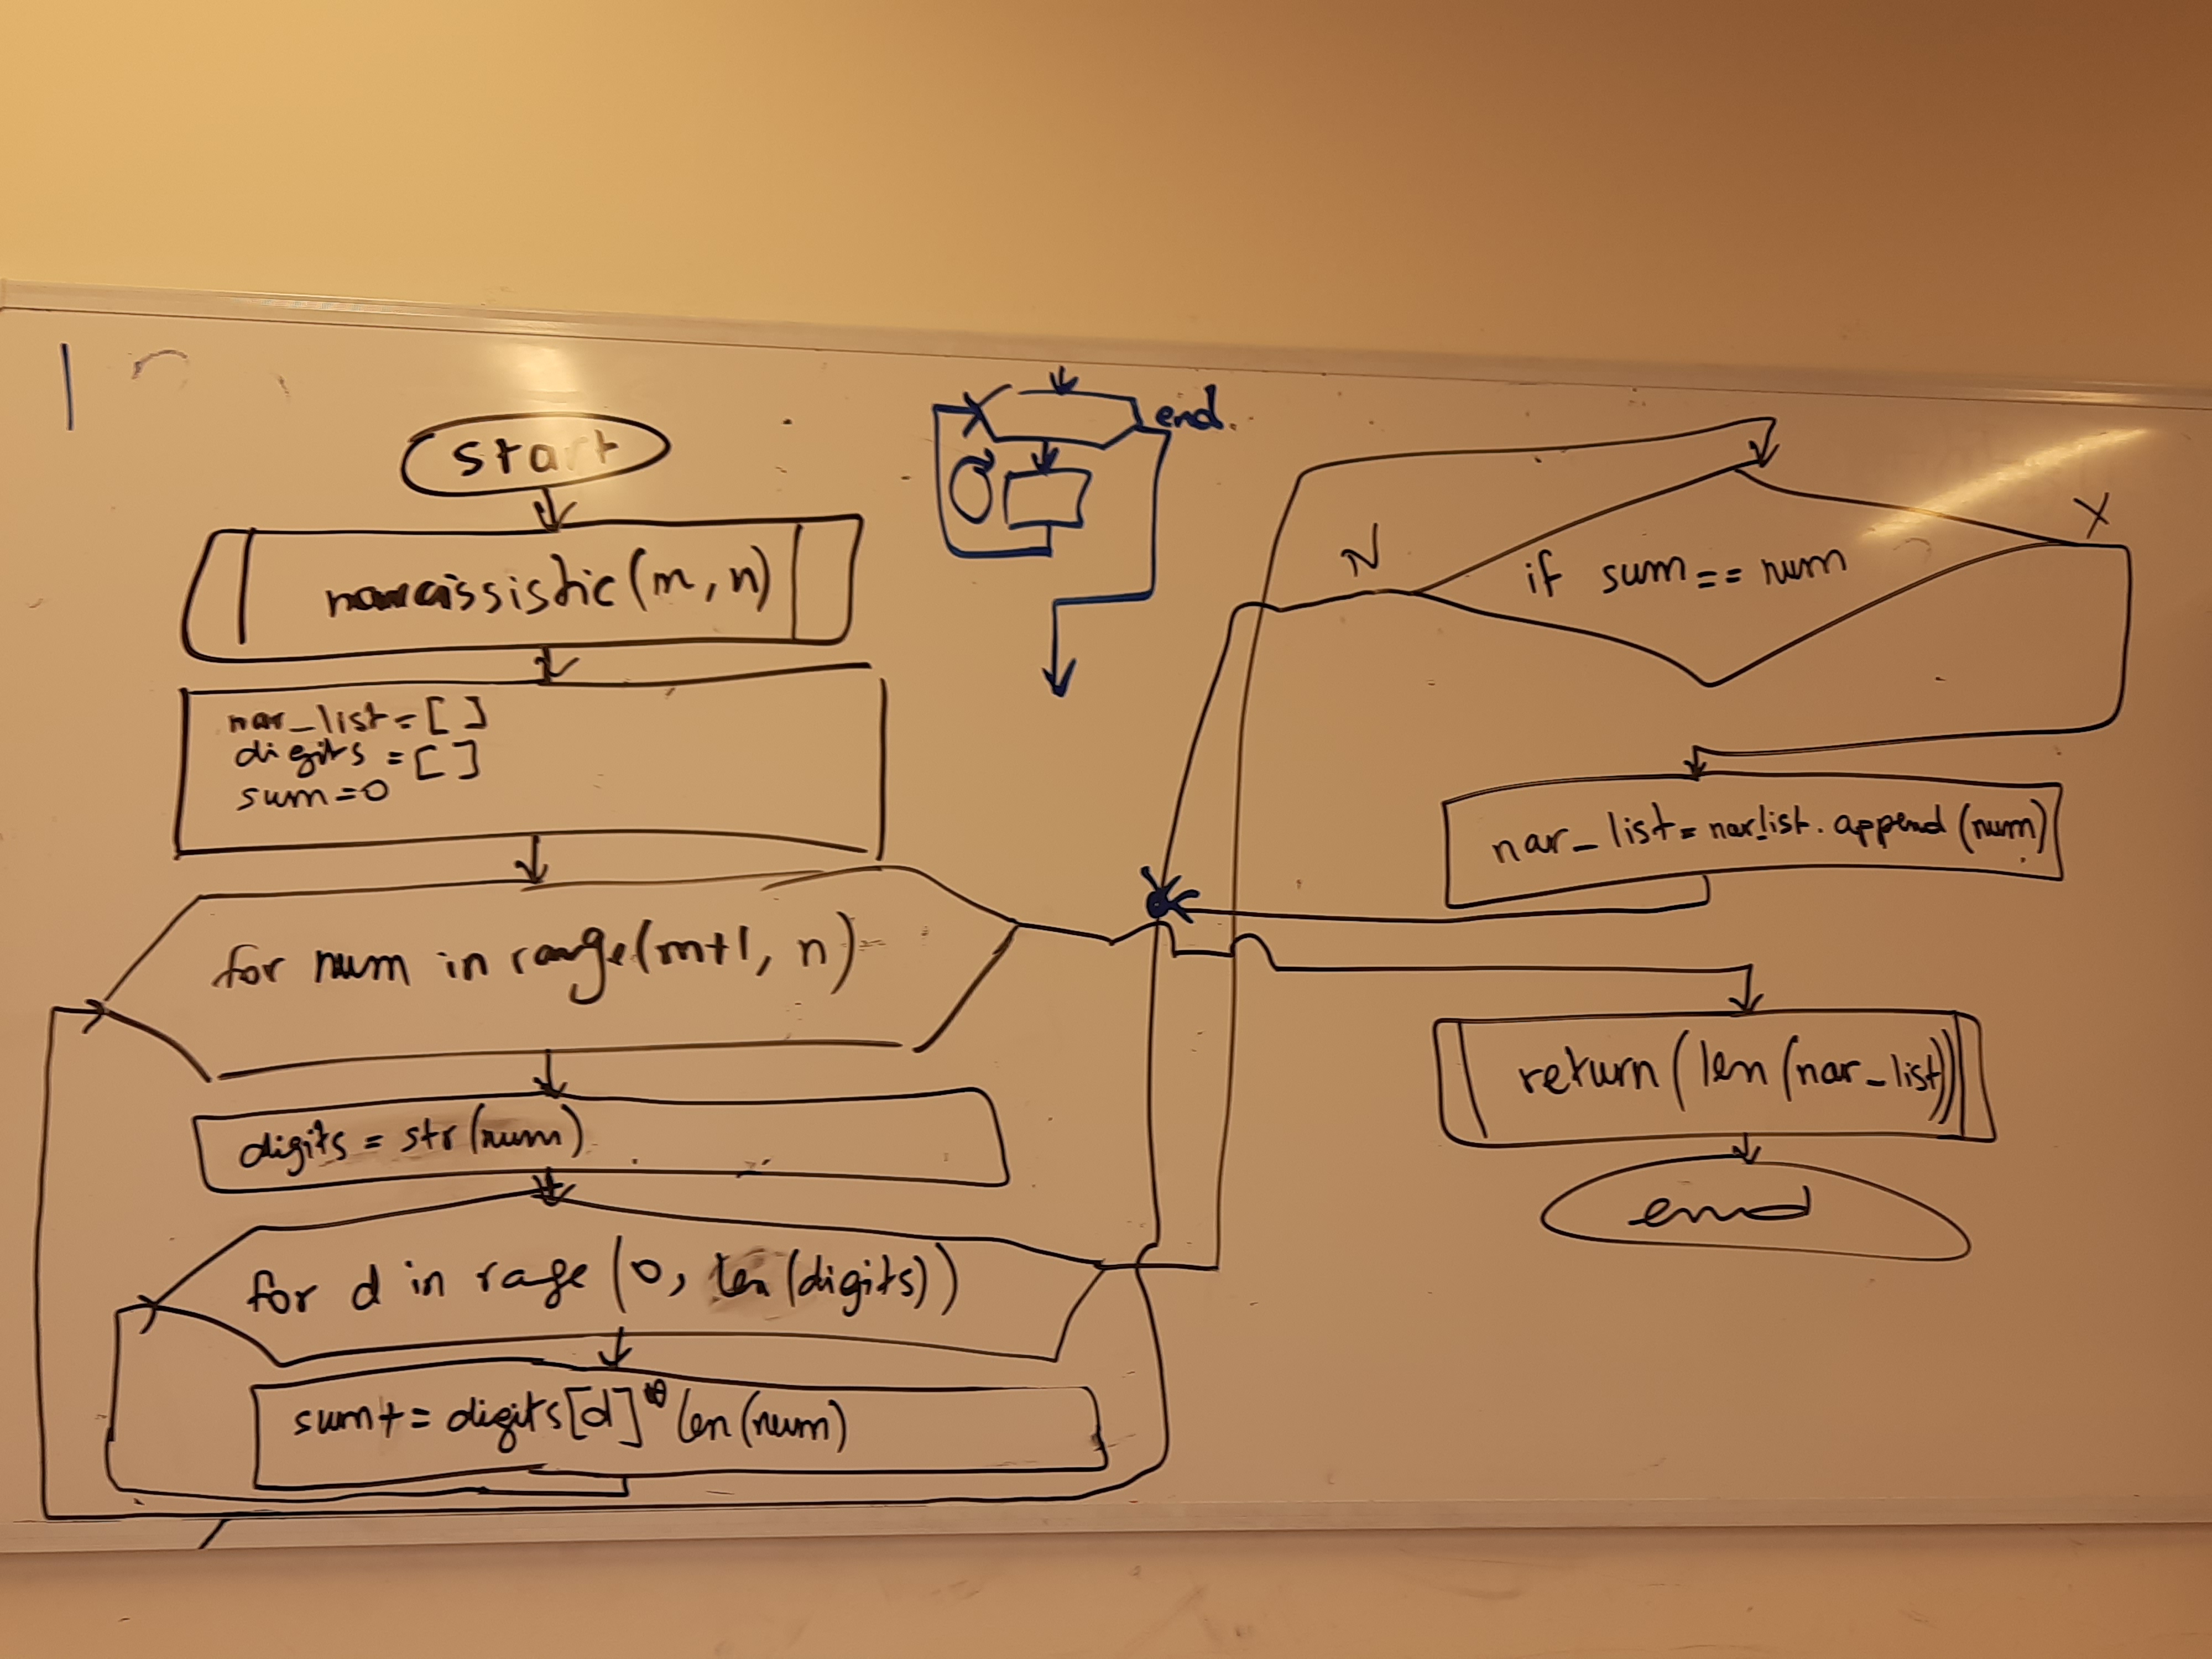 start
narcissistic(m, n)
nar_list=[ ]
digits =[ ]
sum=0
for num in range(m+1, n)
digits = str(num)
for d in rage (0, len(digits))
sum+= digits[d] len(num)
end.
N
Y
if sum == num
nar_list=nar_list.append(num)
return(len(nar_list))
end